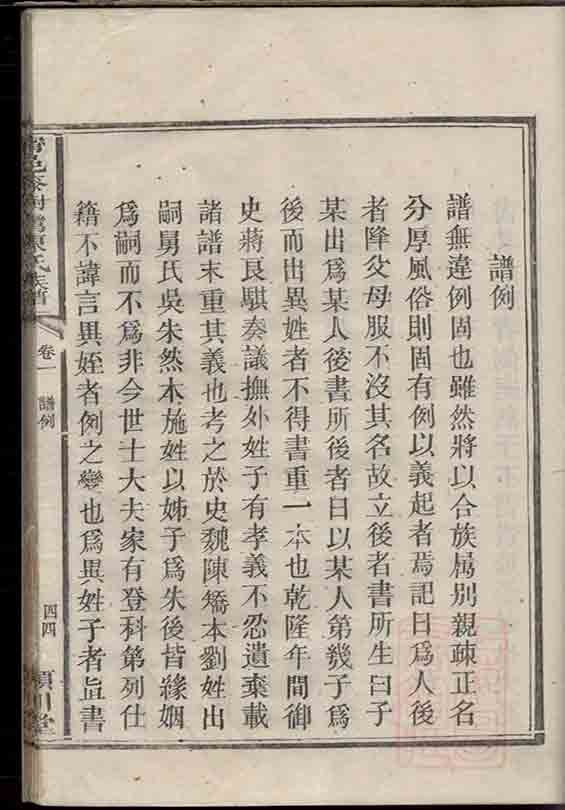 譜例
譜無違例固也雖然將以合族屬別親疎正名
分厚風俗則固有例以義起者焉記曰爲人後
者降父母服不沒其名故立後者書所生曰子
某出爲某人後書所後者曰以某人第幾子爲
後而出異姓者不得書重一本也乾隆年間御
史蔣良騏奏議撫外姓子有孝義不忍遺棄載
諸譜末重其義也考之於史魏陳矯本劉姓出
嗣舅氏吳朱然本施姓以姊子爲朱後皆緣姻
爲嗣而不爲非今世士大夫家有登科第列仕
籍不諱言異姓者例之變也爲異姓子者直書
氏族譜
卷一
譜例
四四
潁川堂